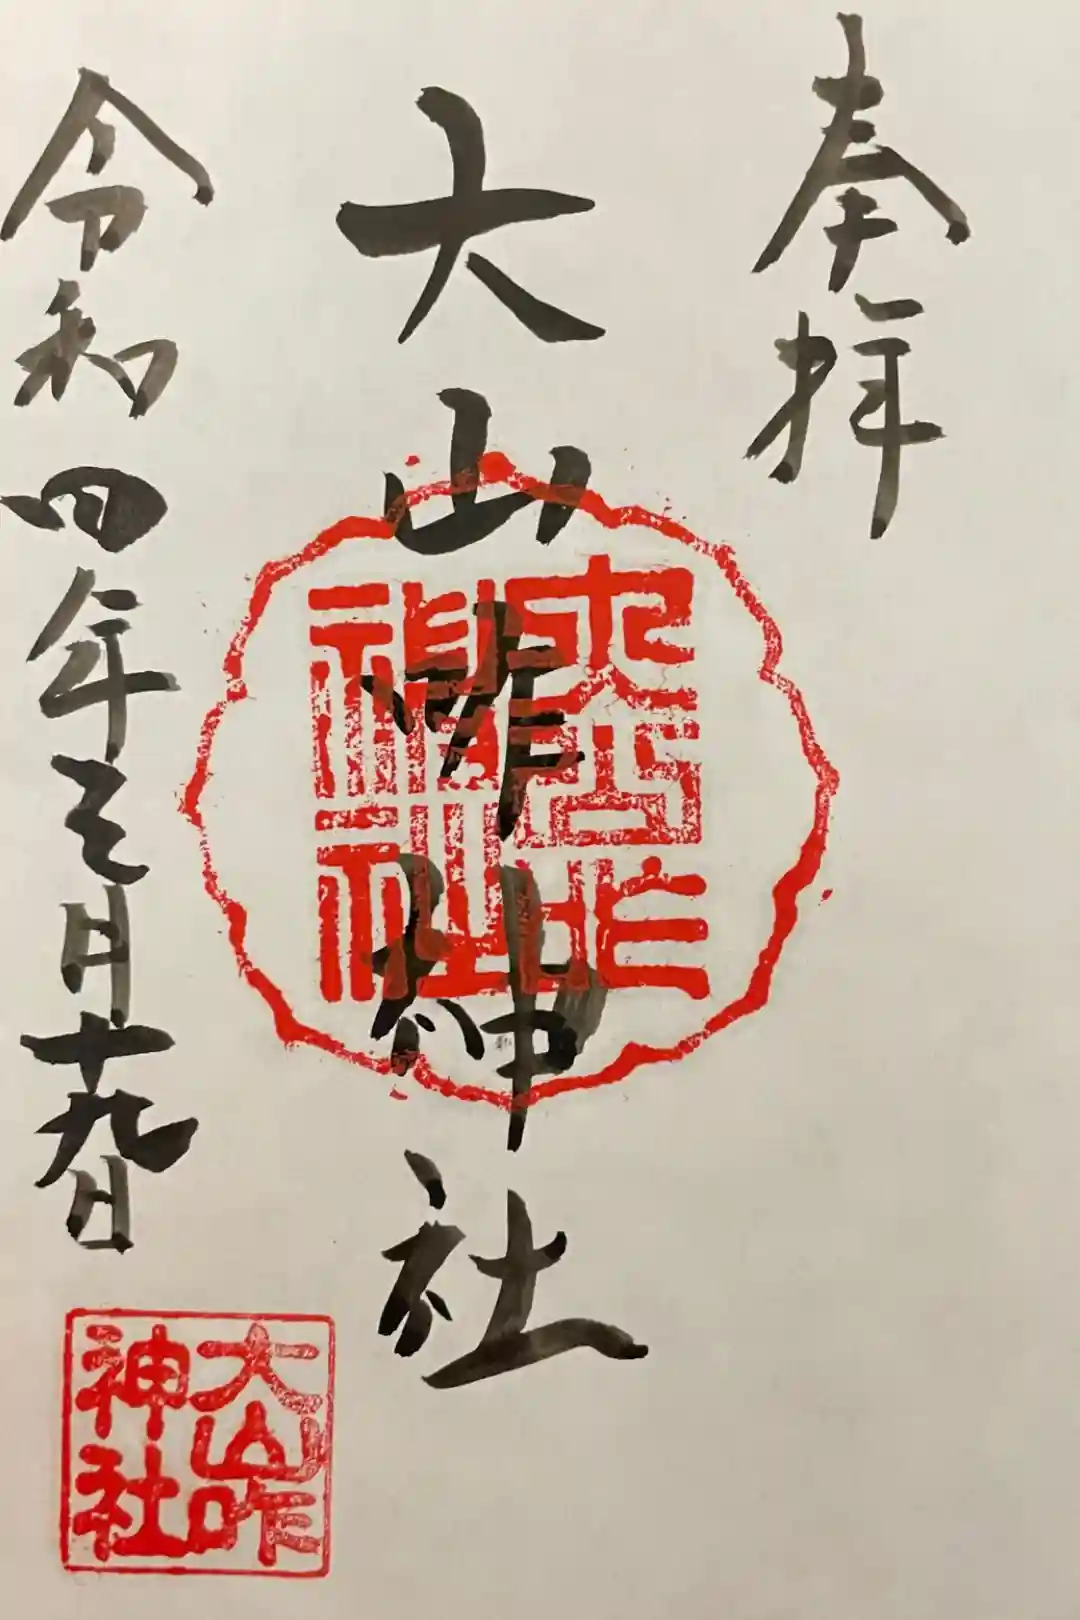 奉拝
大山咋神社
令和四年三月十九日
大山咋
神社
大山咋
神社